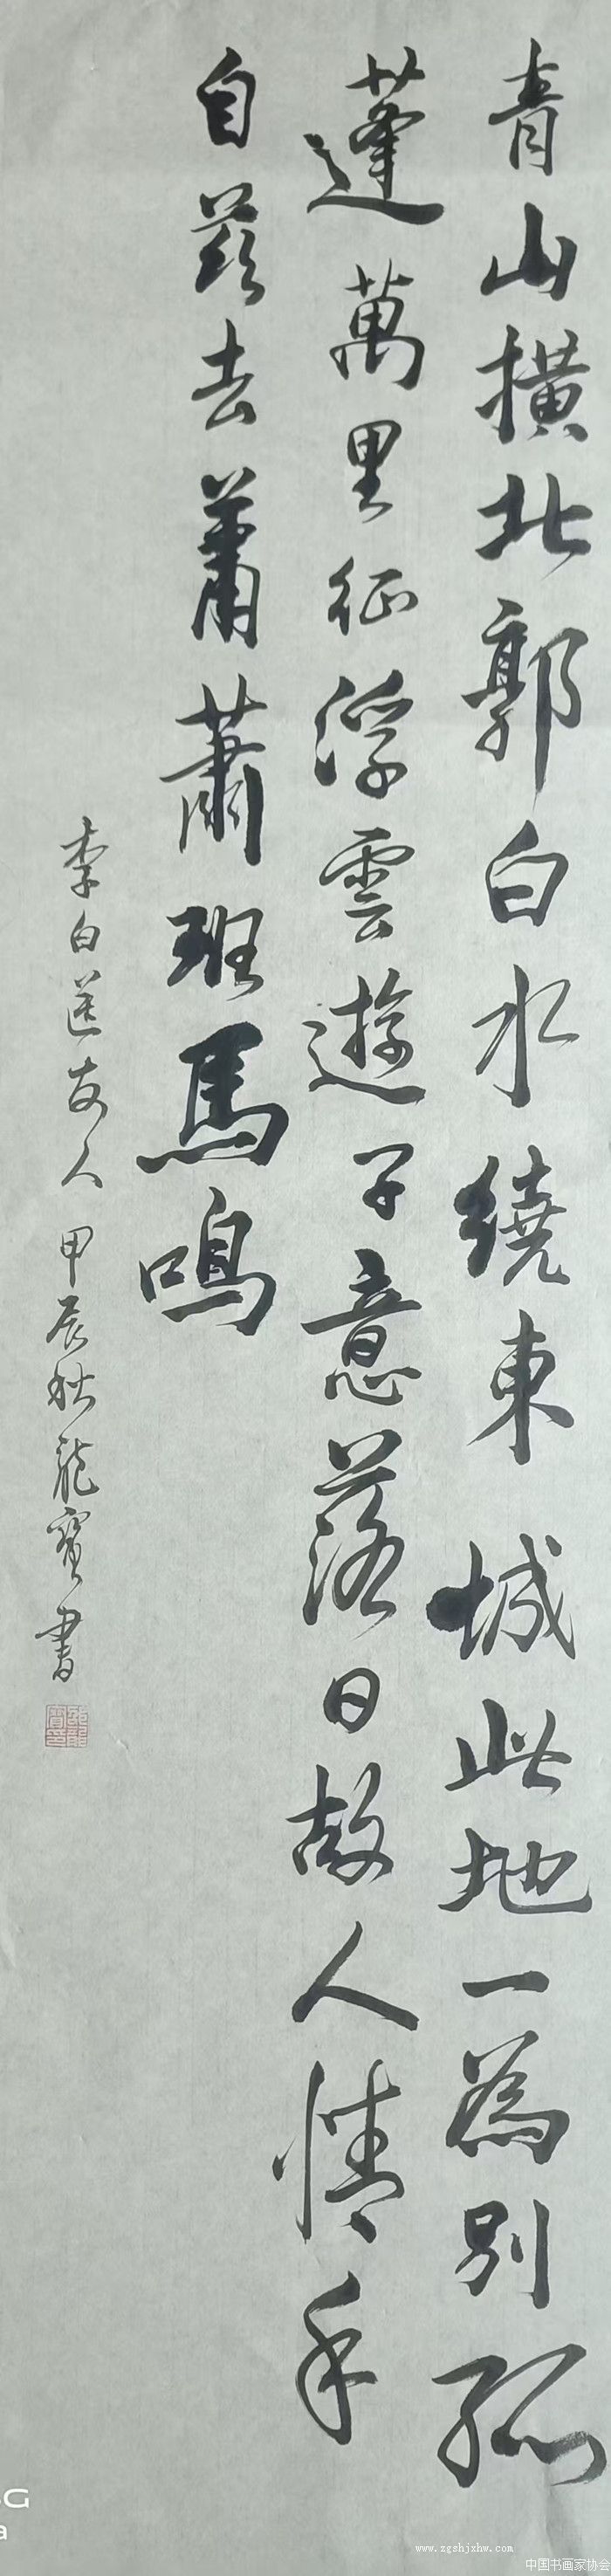 青山横北郭白水繞東城此地一為別孤
蓬萬里征浮雲遊子意落日故人情手
自茲去蕭蕭班馬鳴
李白送友人 甲辰秋龍寶書
www.zgshjxhw.com
中国书画家协会